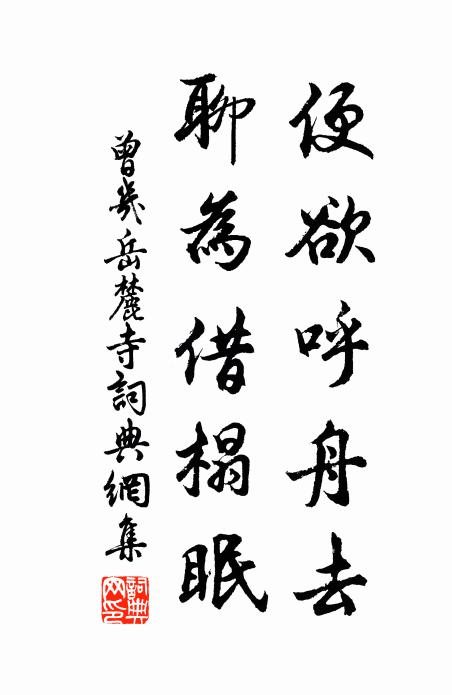 便欲呼舟去
聊為借榻眠
曾幾岳麓寺詞典網集